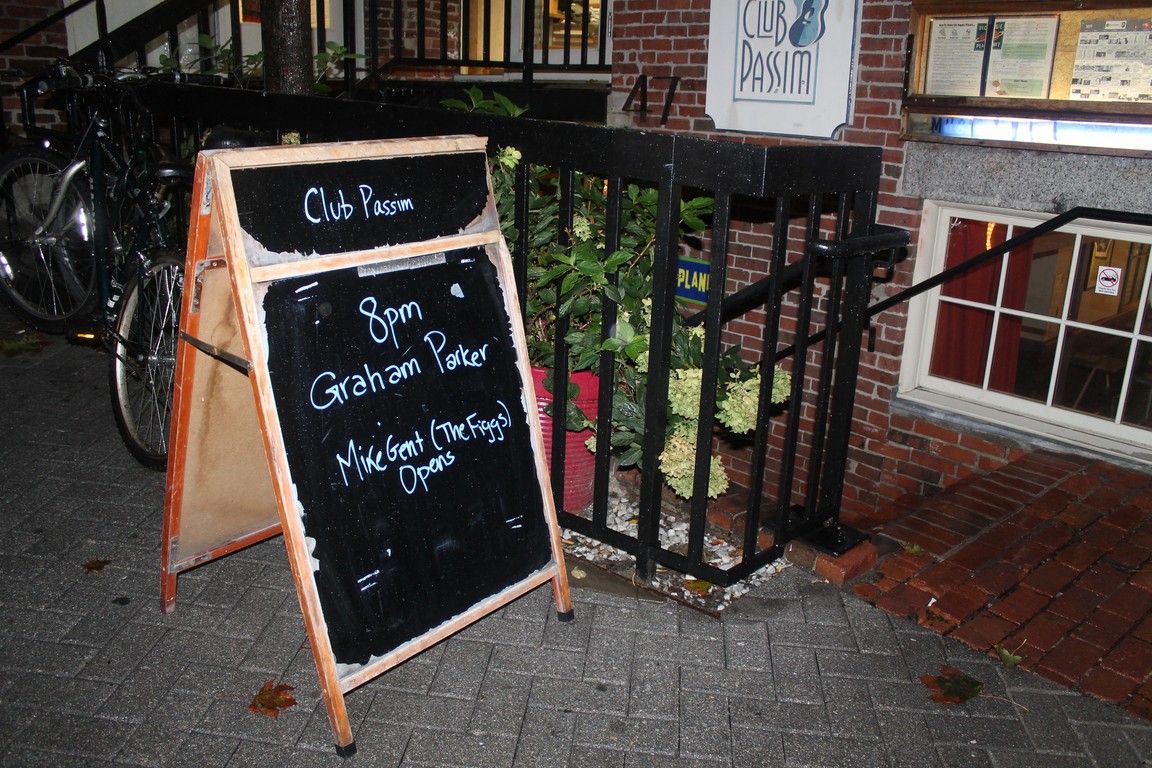 CLUB
PASSIM
47
Club Passim
8pm
Graham Parker
Mike Gent (The Figgs)
Opens